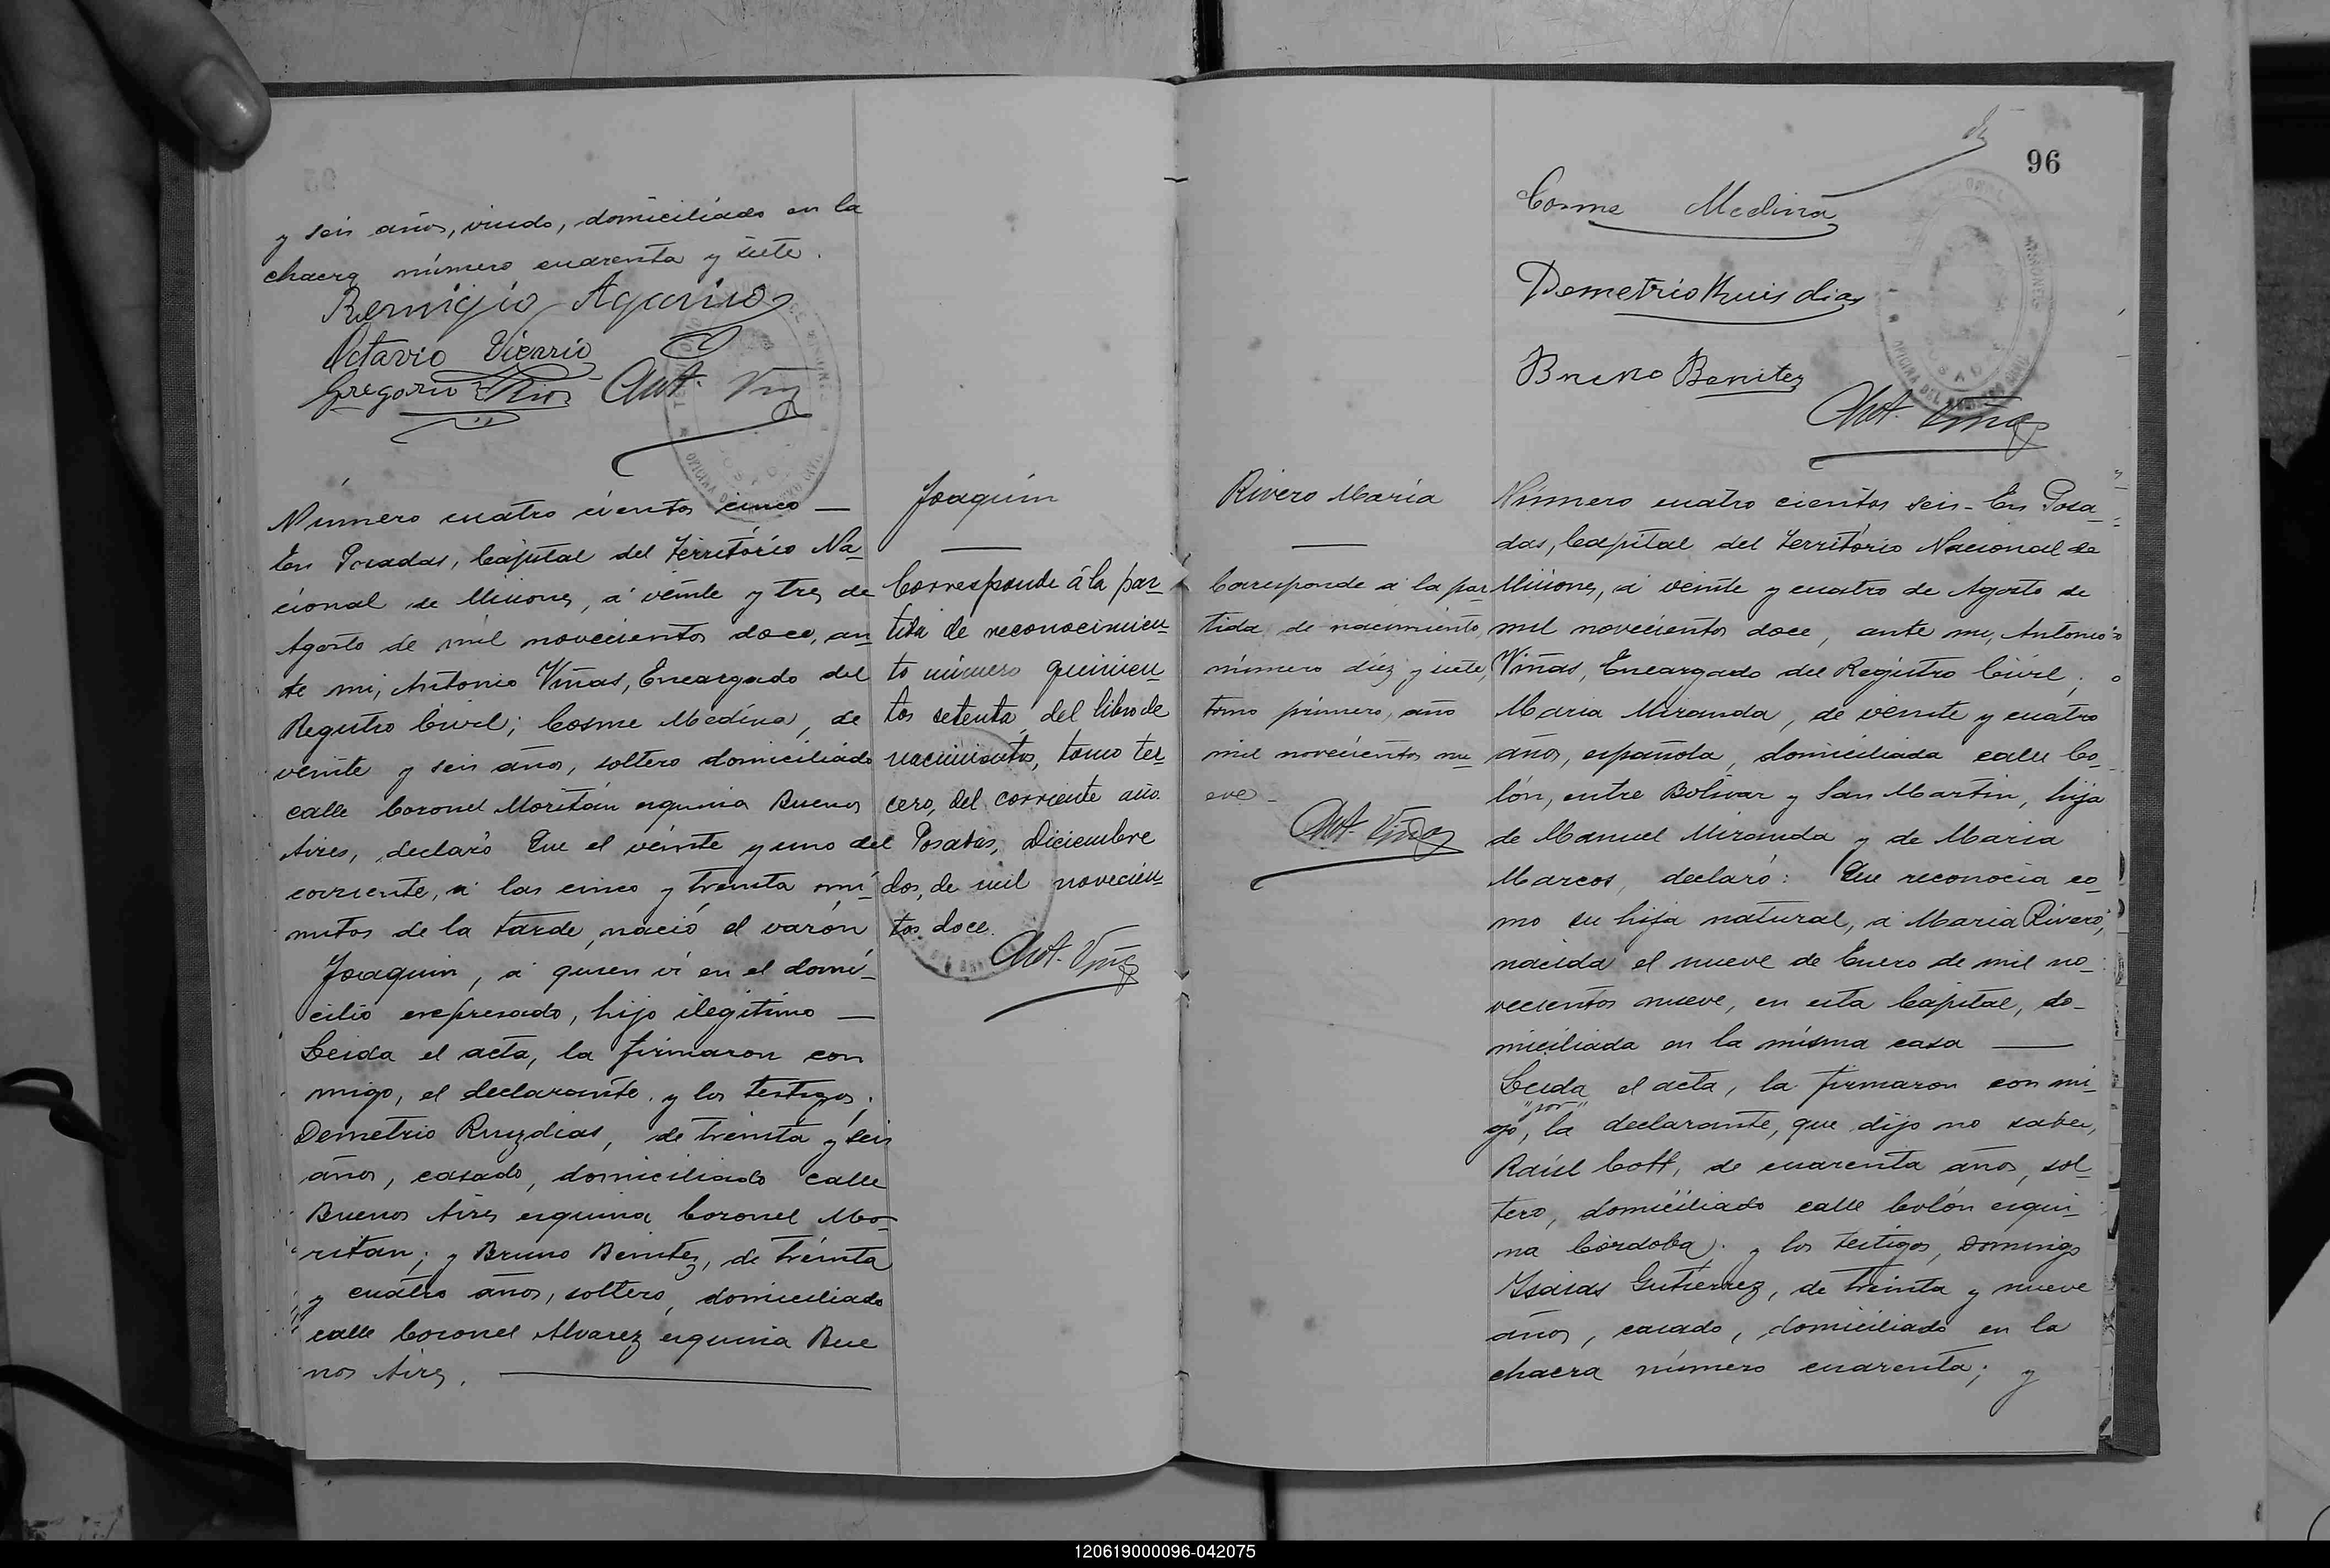 y seis años, viudo, domiciliado en la
chacra número cuarenta y siete.
Remigio
Octavio Vicario
Gregorio Rios Ant. Viñas
Número cuatro cientos cinco —
En Posadas, Capital del Territorio Na-
cional de Misiones, á veinte y tres de
Agosto de mil novecientos doce, an-
te mi, Antonio Viñas, Encargado del
Registro Civil; Cosme Medina, de
veinte y seis años, soltero domiciliado
calle Coronel Moritán esquina Buenos
Aires, declaró Que el veinte y uno del
corriente, á las cinco y treinta mi-
nutos de la tarde, nació el varón
Joaquin, á quien ví en el domi-
cilio expresado, hijo ilegitimo —
Leida el acta, la firmaron con
migo, el declarante y los testigos.
Demetrio Ruizdias, de treinta y seis
años, casado, domiciliado calle
Buenos Aires esquina Coronel Mo-
ritán; y Bruno Benitez, de treinta
y cuatro años, soltero, domiciliado
calle Coronel Alvarez esquina Bue
nos Aires. —
Joaquín
Corresponde á la par-
tida de reconocimien-
to número quinien-
tos setenta, del libro de
nacimientos, tomo ter-
cero, del corriente año.
Posadas, Diciembre
dos, de mil novecien-
tos doce.
Ant. Viñas
96
Cosme Medina
Demetrio Ruis dias
Bruno Benitez
Ant. Viñas
OFICINA DEL REGISTRO CIVIL
Rivero María
Corresponde á la par
tida de nacimiento,
número diez y siete,
tomo primero, año
mil novecientos nu-
eve-
Ant. Viñas
Número cuatro cientos seis- En Posa-
das, Capital del Territorio Nacional de
Misiones, á veinte y cuatro de Agosto de
mil novecientos doce, ante mi, Antonio
Viñas, Encargado del Registro Civil;
Maria Miranda, de veinte y cuatro
años, española, domiciliada calle Co-
lón, entre Bolivar y San Martin, hija
de Manuel Miranda y de Maria
Marcos, declaró: Que reconocía co-
mo su hija natural, á Maria Rivero,
nacida el nueve de Enero de mil no-
vecientos nueve, en esta Capital, do-
miciliada en la misma casa —
Leida el acta, la firmaron con mi-
"por"
go, la declarante, que dijo no saber,
Raúl Cott, de cuarenta años, sol-
tero, domiciliado calle Colón esqui-
na Córdoba; y los testigos, Domingo
Isaias Gutierrez, de treinta y nueve
años, casado, domiciliado en la
chacra número cuarenta; y
120619000096-042075